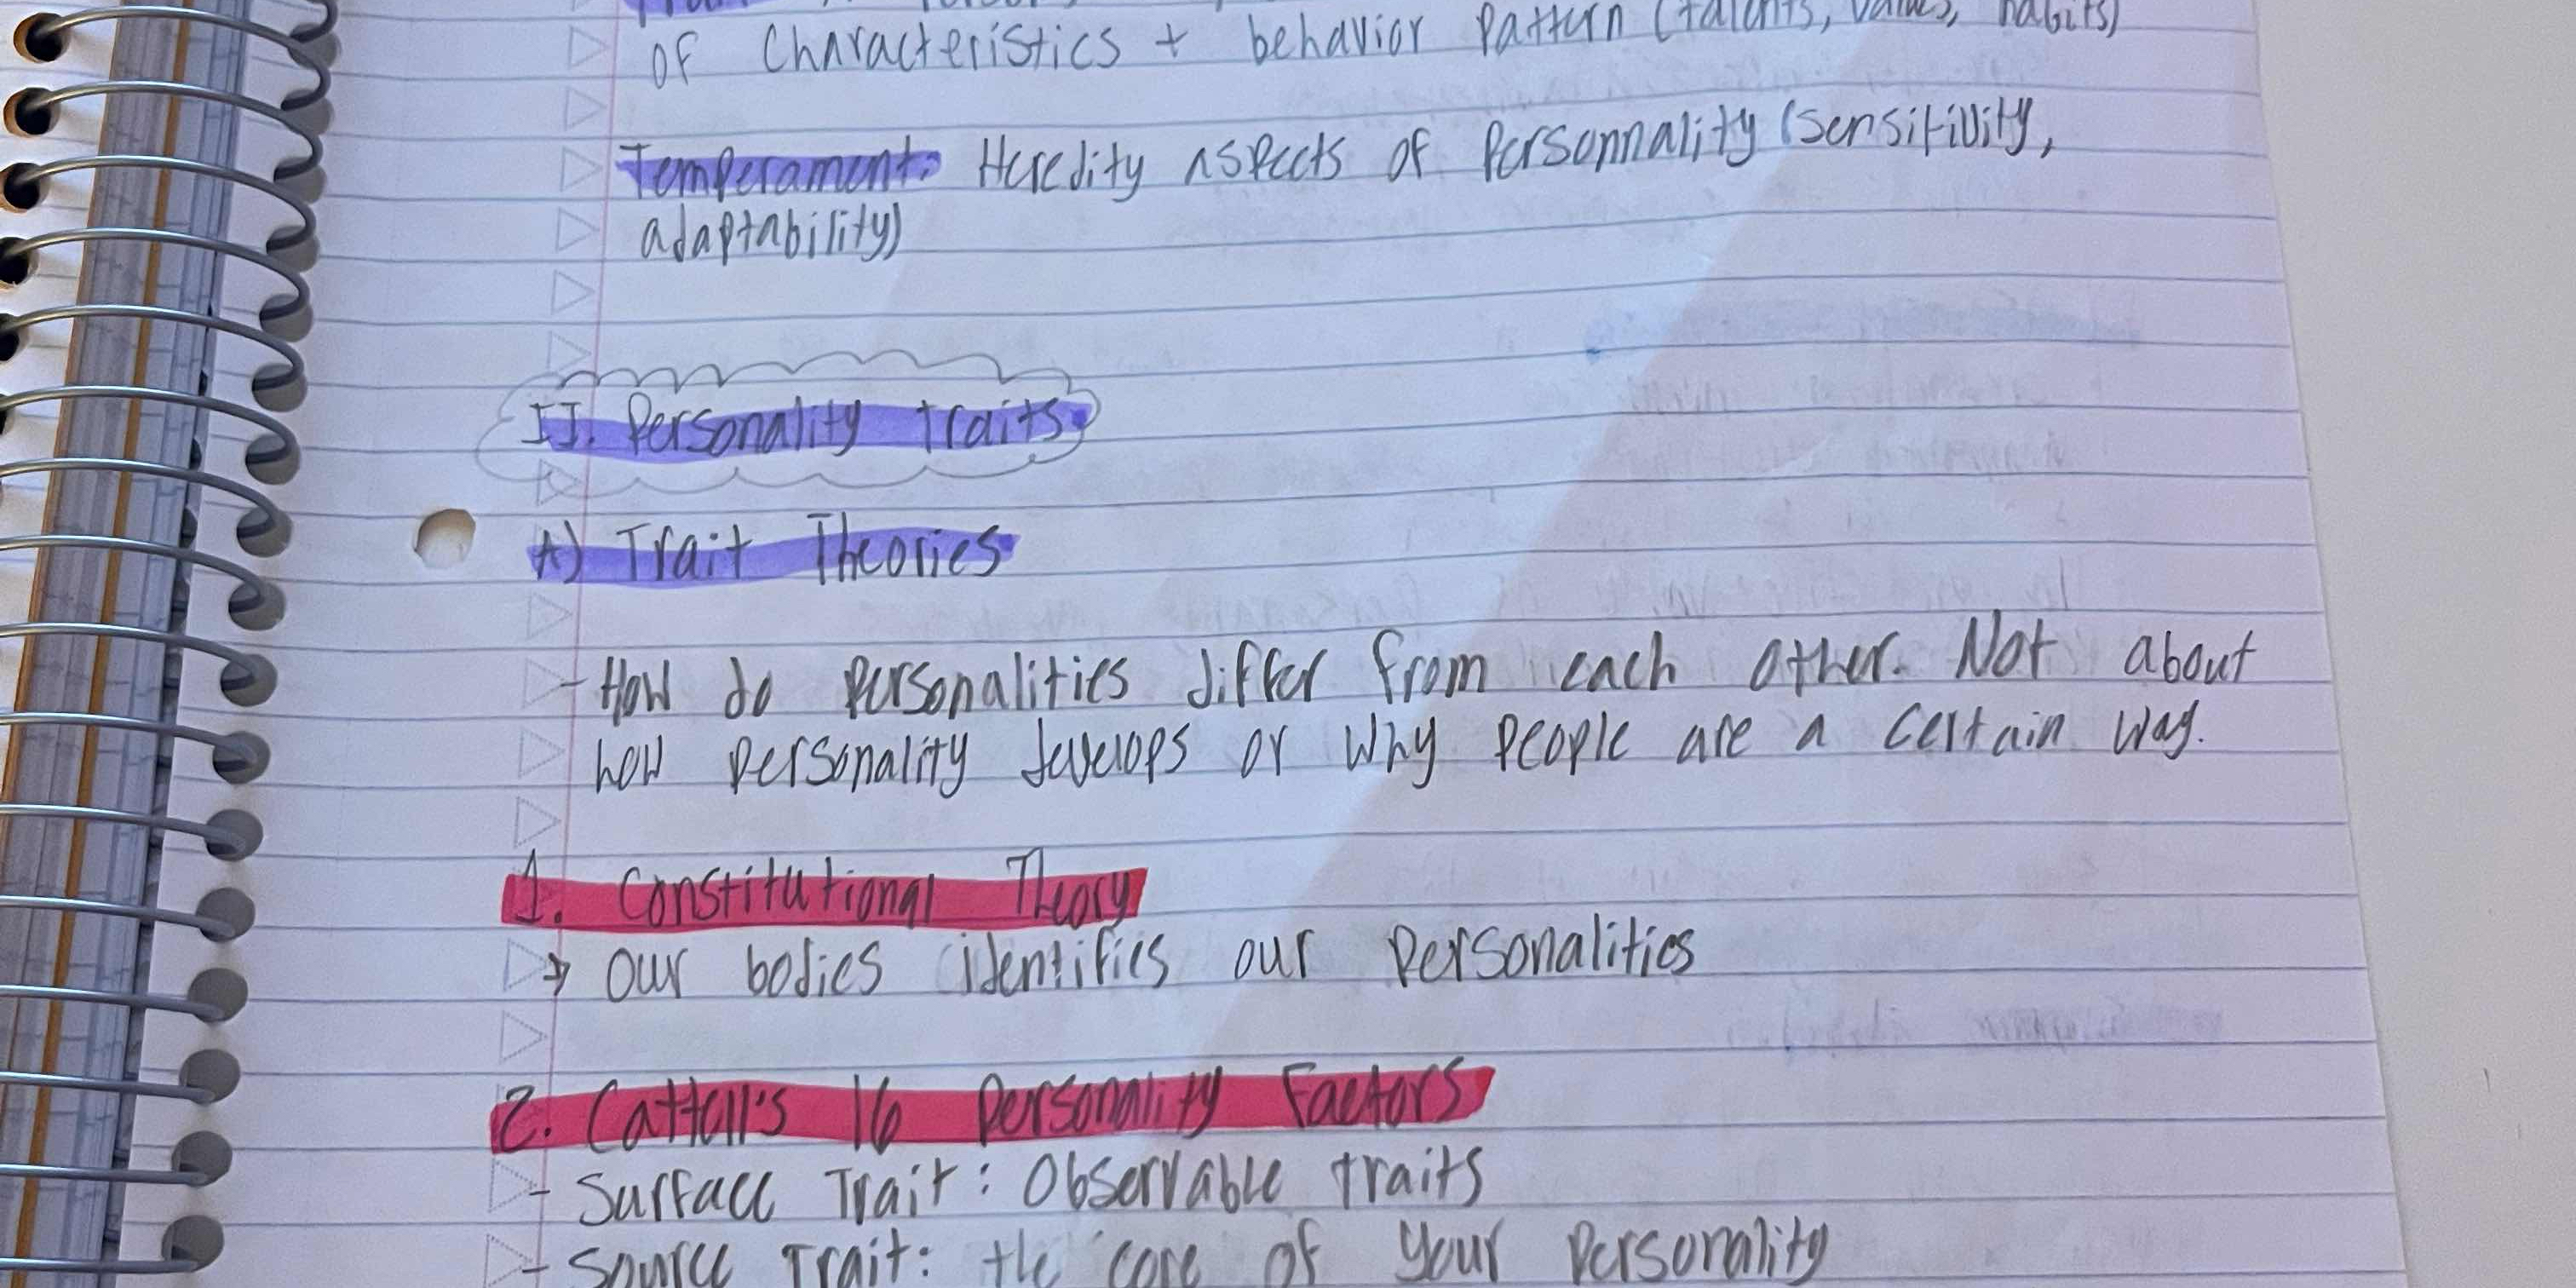 of characteristics + behavior pattern (talents, values, habits)
Temperament: Heredity aspects of Personnality (sensitivity,
adaptability)
II. Personality traits:
A) Trait Theories:
- How do personalities differ from each other. Not about
how personality develops or why people are a certain way.
1. Constitutional Theory
→ our bodies identifies our personalities
2. Cattell's 16 Personality Factors
- Surface Trait: Observable traits
- Source Trait: the core of your personality